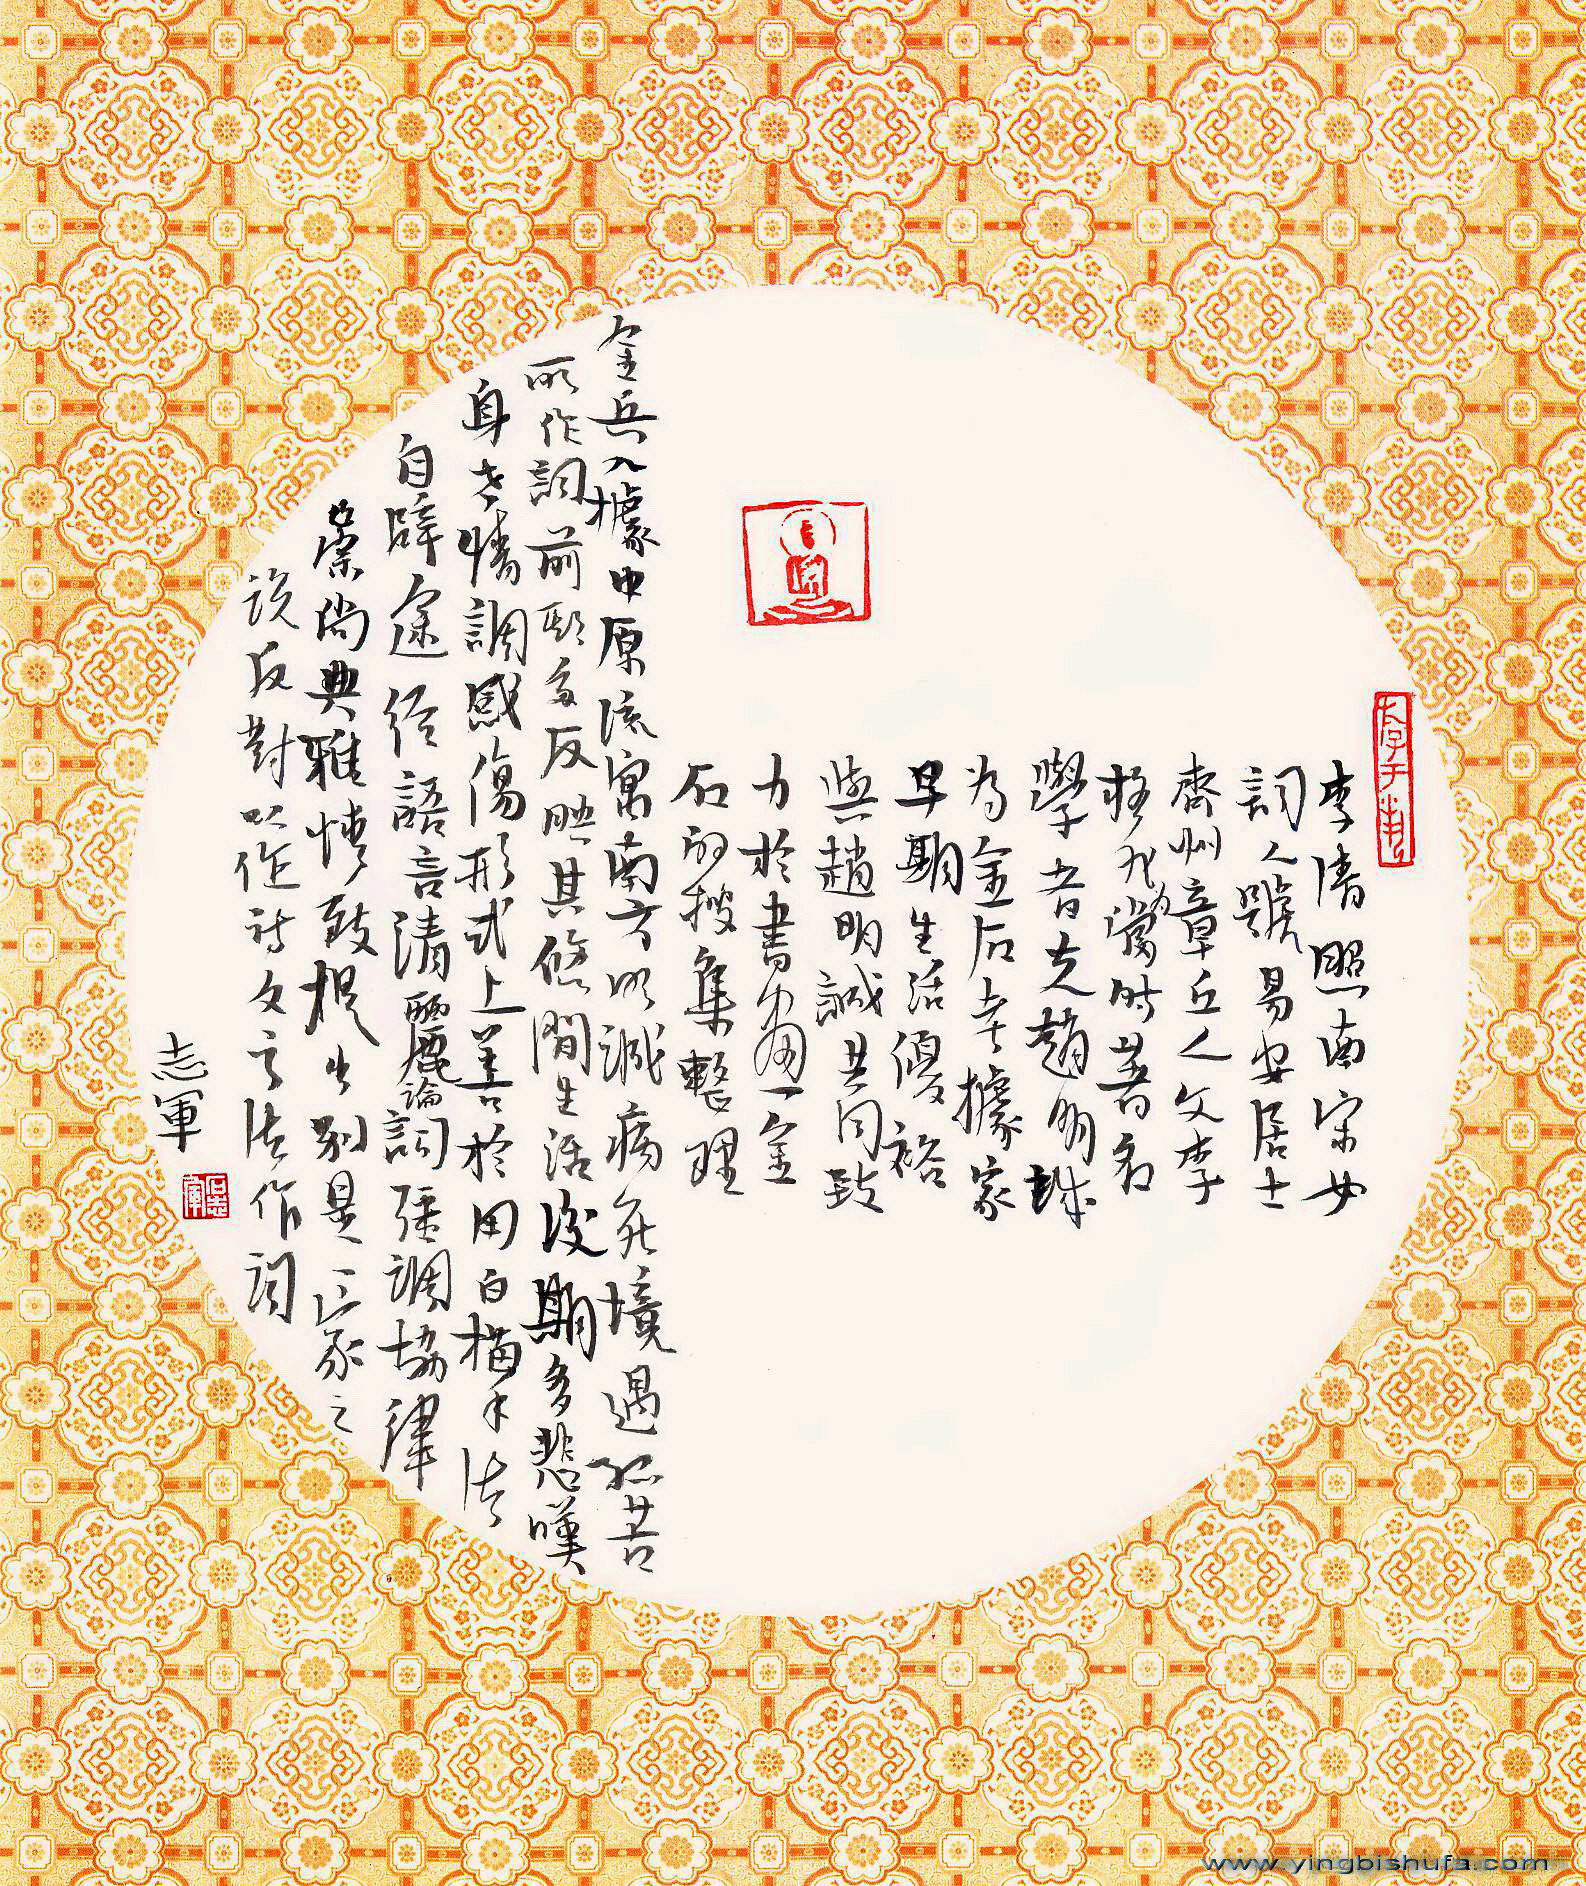 李清照南宋女
詞人號易安居士
齊州章丘人父李
格非為當時著名
學者夫趙明誠
為金石考據家
早期生活優裕
與趙明誠共同致
力於書畫金
石的搜集整理
金兵入據中原流寓南方明誠病死境遇孤苦
所作詞前期多反映其悠閒生活後期多悲嘆
身世情調感傷形式上善於用白描手法
自辟途徑語言清麗論詞強調協律
崇尚典雅情致提出別是一家之
說反對以作詩文之法作詞
志軍
www.yingbishufa.com